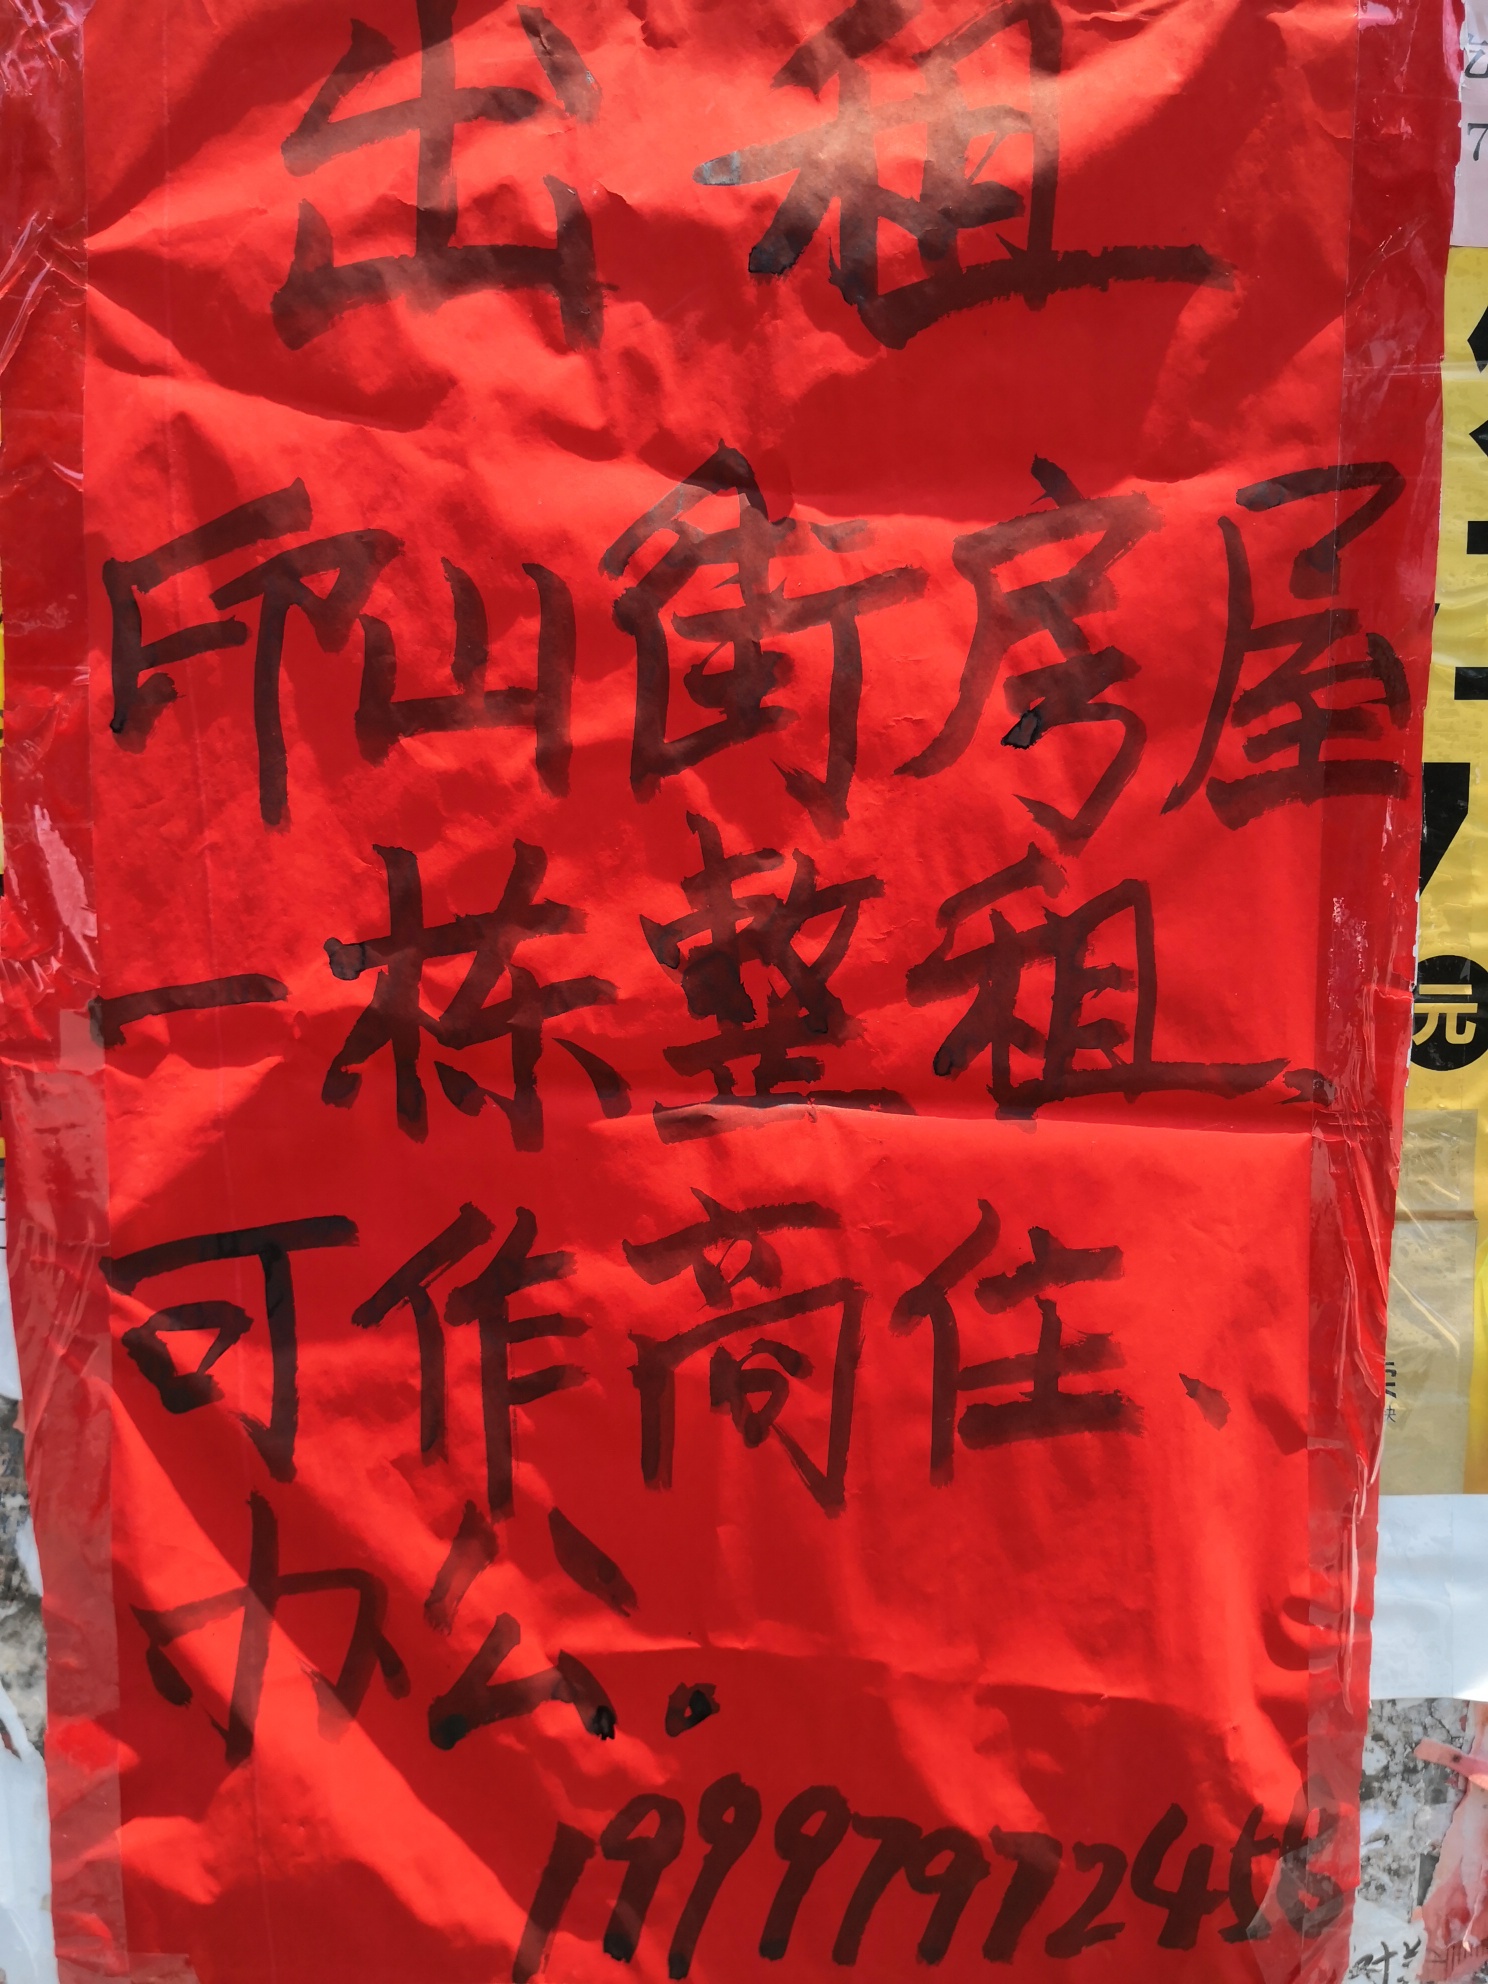 出租
印山街房屋
一栋整租、
可作商住、
办公。
19997972458
元